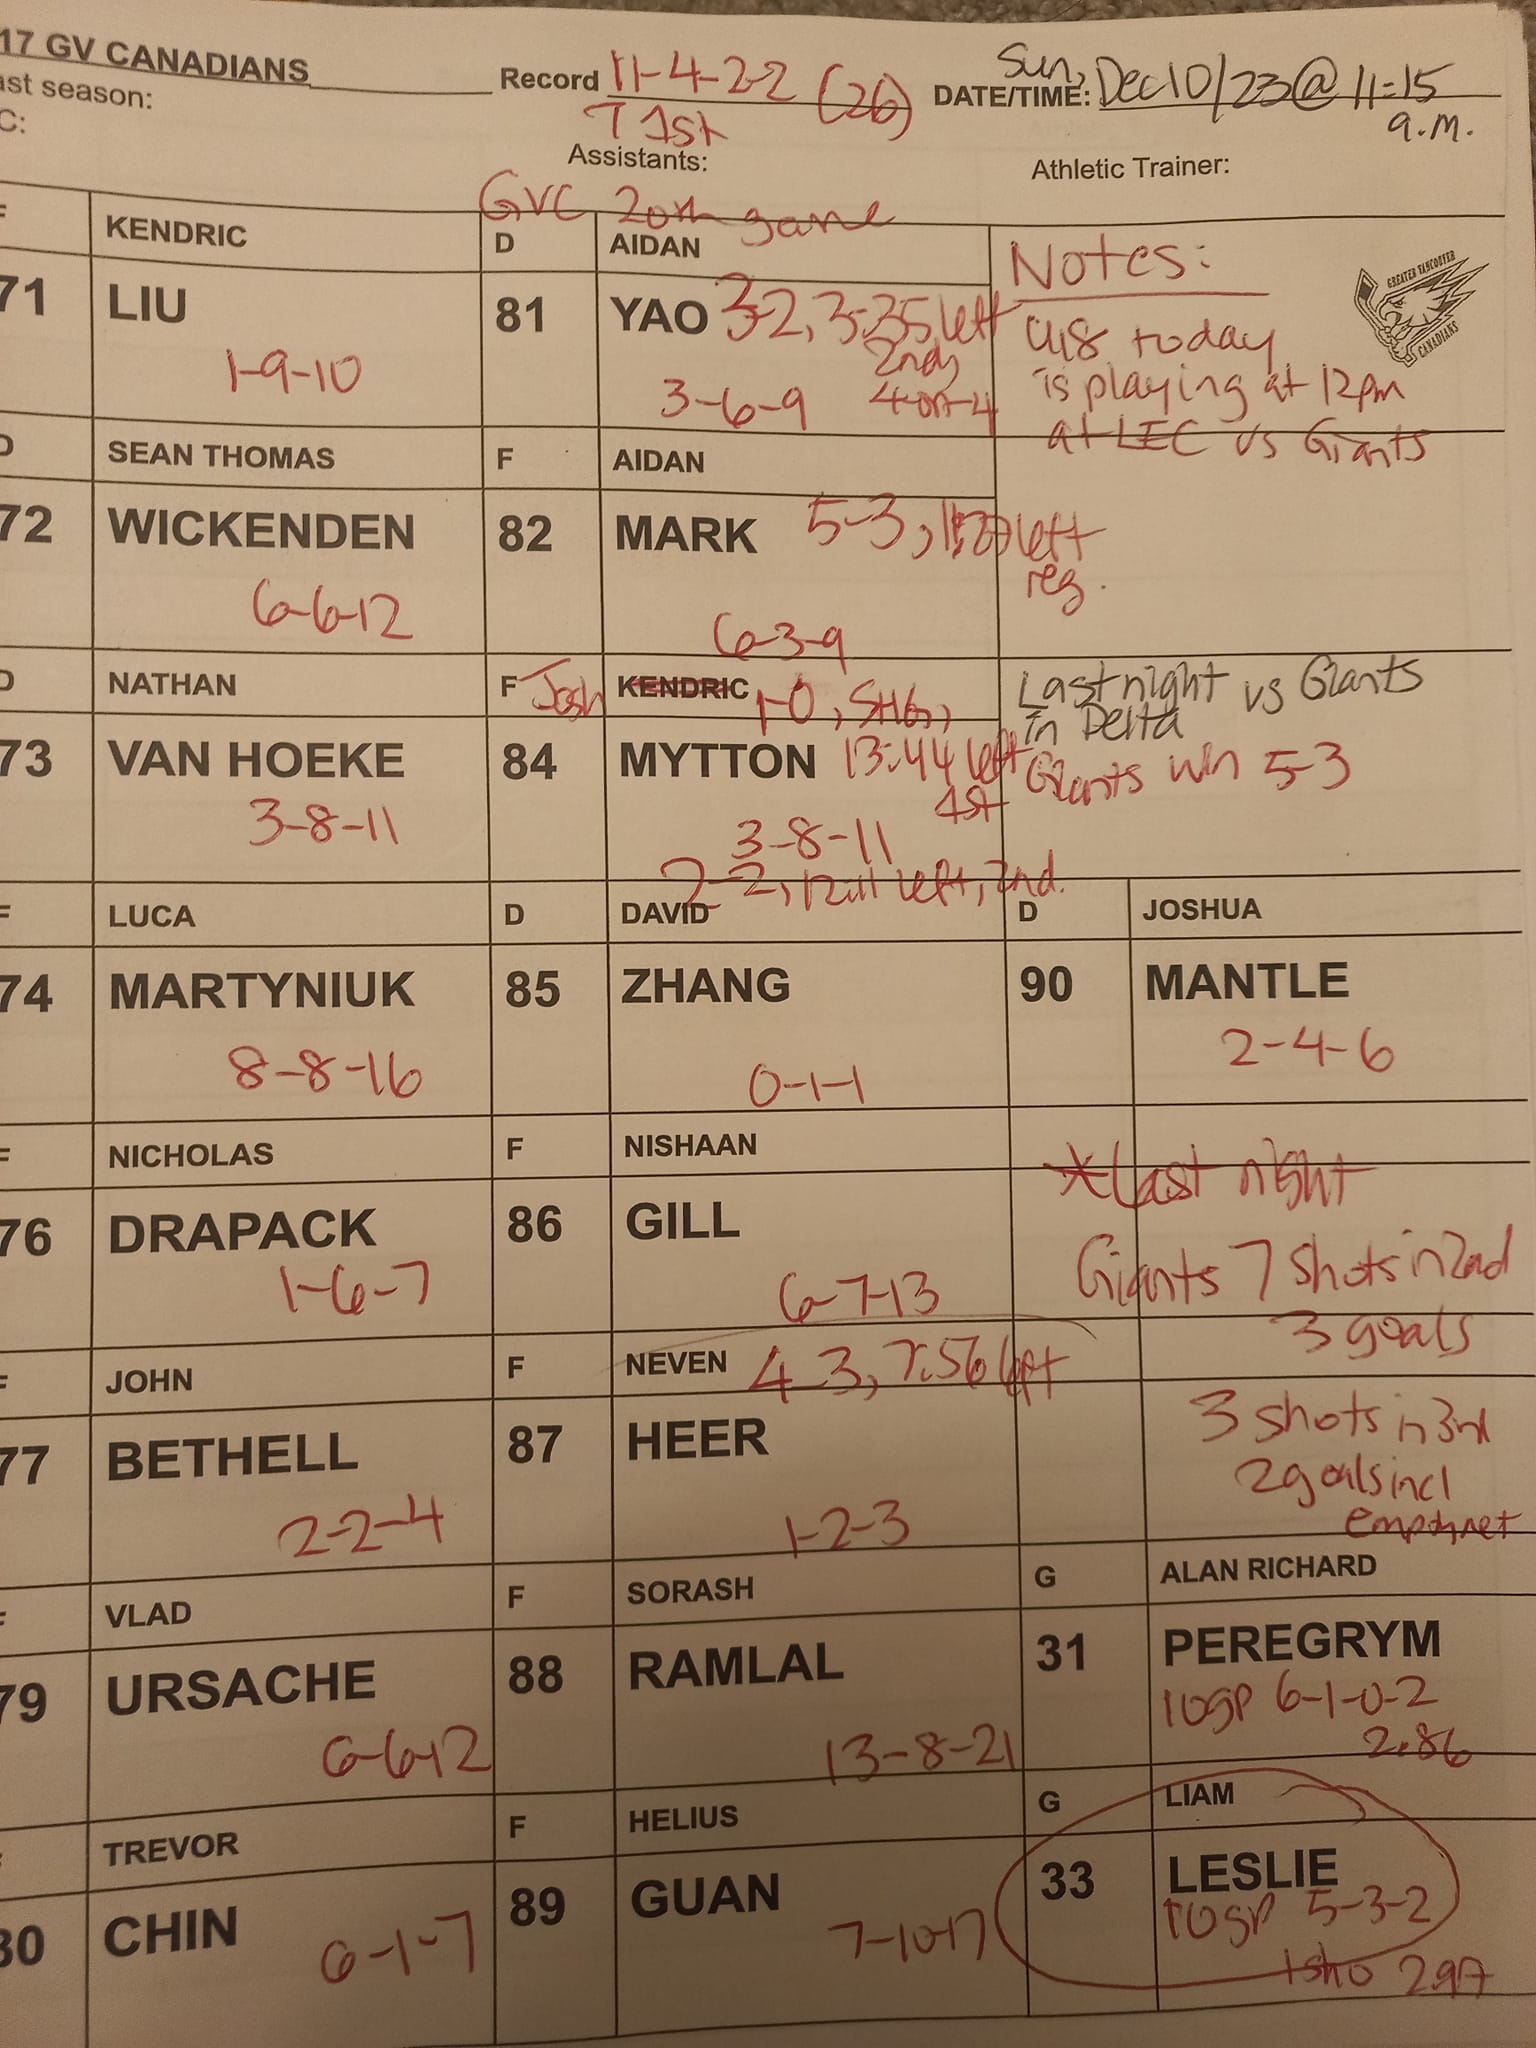 17 GV CANADIANS Record 11-4-2-2 (26) Sun,
DATE/TIME: Dec 10/23 @ 11:15
a.m.
ast season:
T 1st
C:
Assistants: Athletic Trainer:
GVC 20th game
F KENDRIC D AIDAN
71 LIU 81 YAO 3-2, 3:35 left
2nd,
4-on-4
1-9-10 3-6-9
Notes:
GREATER VANCOUVER
CANADIANS
U18 today
is playing at 12pm
at LEC vs Giants
D SEAN THOMAS F AIDAN
72 WICKENDEN 82 MARK 5-3, left
reg.
6-6-12 6-3-9
D NATHAN F Josh KENDRIC 1-0, SHG,
73 VAN HOEKE 84 MYTTON 13:44 left
1st
3-8-11 3-8-11
2-2, 12:11 left, 2nd.
Last night vs Giants
in Delta
Giants win 5-3
F LUCA D DAVID D JOSHUA
74 MARTYNIUK 85 ZHANG 90 MANTLE
8-8-16 0-1-1 2-4-6
F NICHOLAS F NISHAAN
76 DRAPACK 86 GILL
1-6-7 6-7-13
*Last night
Giants 7 shots in 2nd
3 goals
F JOHN F NEVEN 4-3, 7:56 left
77 BETHELL 87 HEER
2-2-4 1-2-3
3 shots in 3rd
2 goals incl
empty net
F VLAD F SORASH G ALAN RICHARD
79 URSACHE 88 RAMLAL 31 PEREGRYM
6-6-12 13-8-21 10GP 6-1-0-2
2.86
TREVOR F HELIUS G LIAM
80 CHIN 89 GUAN 33 LESLIE
6-1-7 7-10-17 10GP 5-3-2
1 sho 2.97